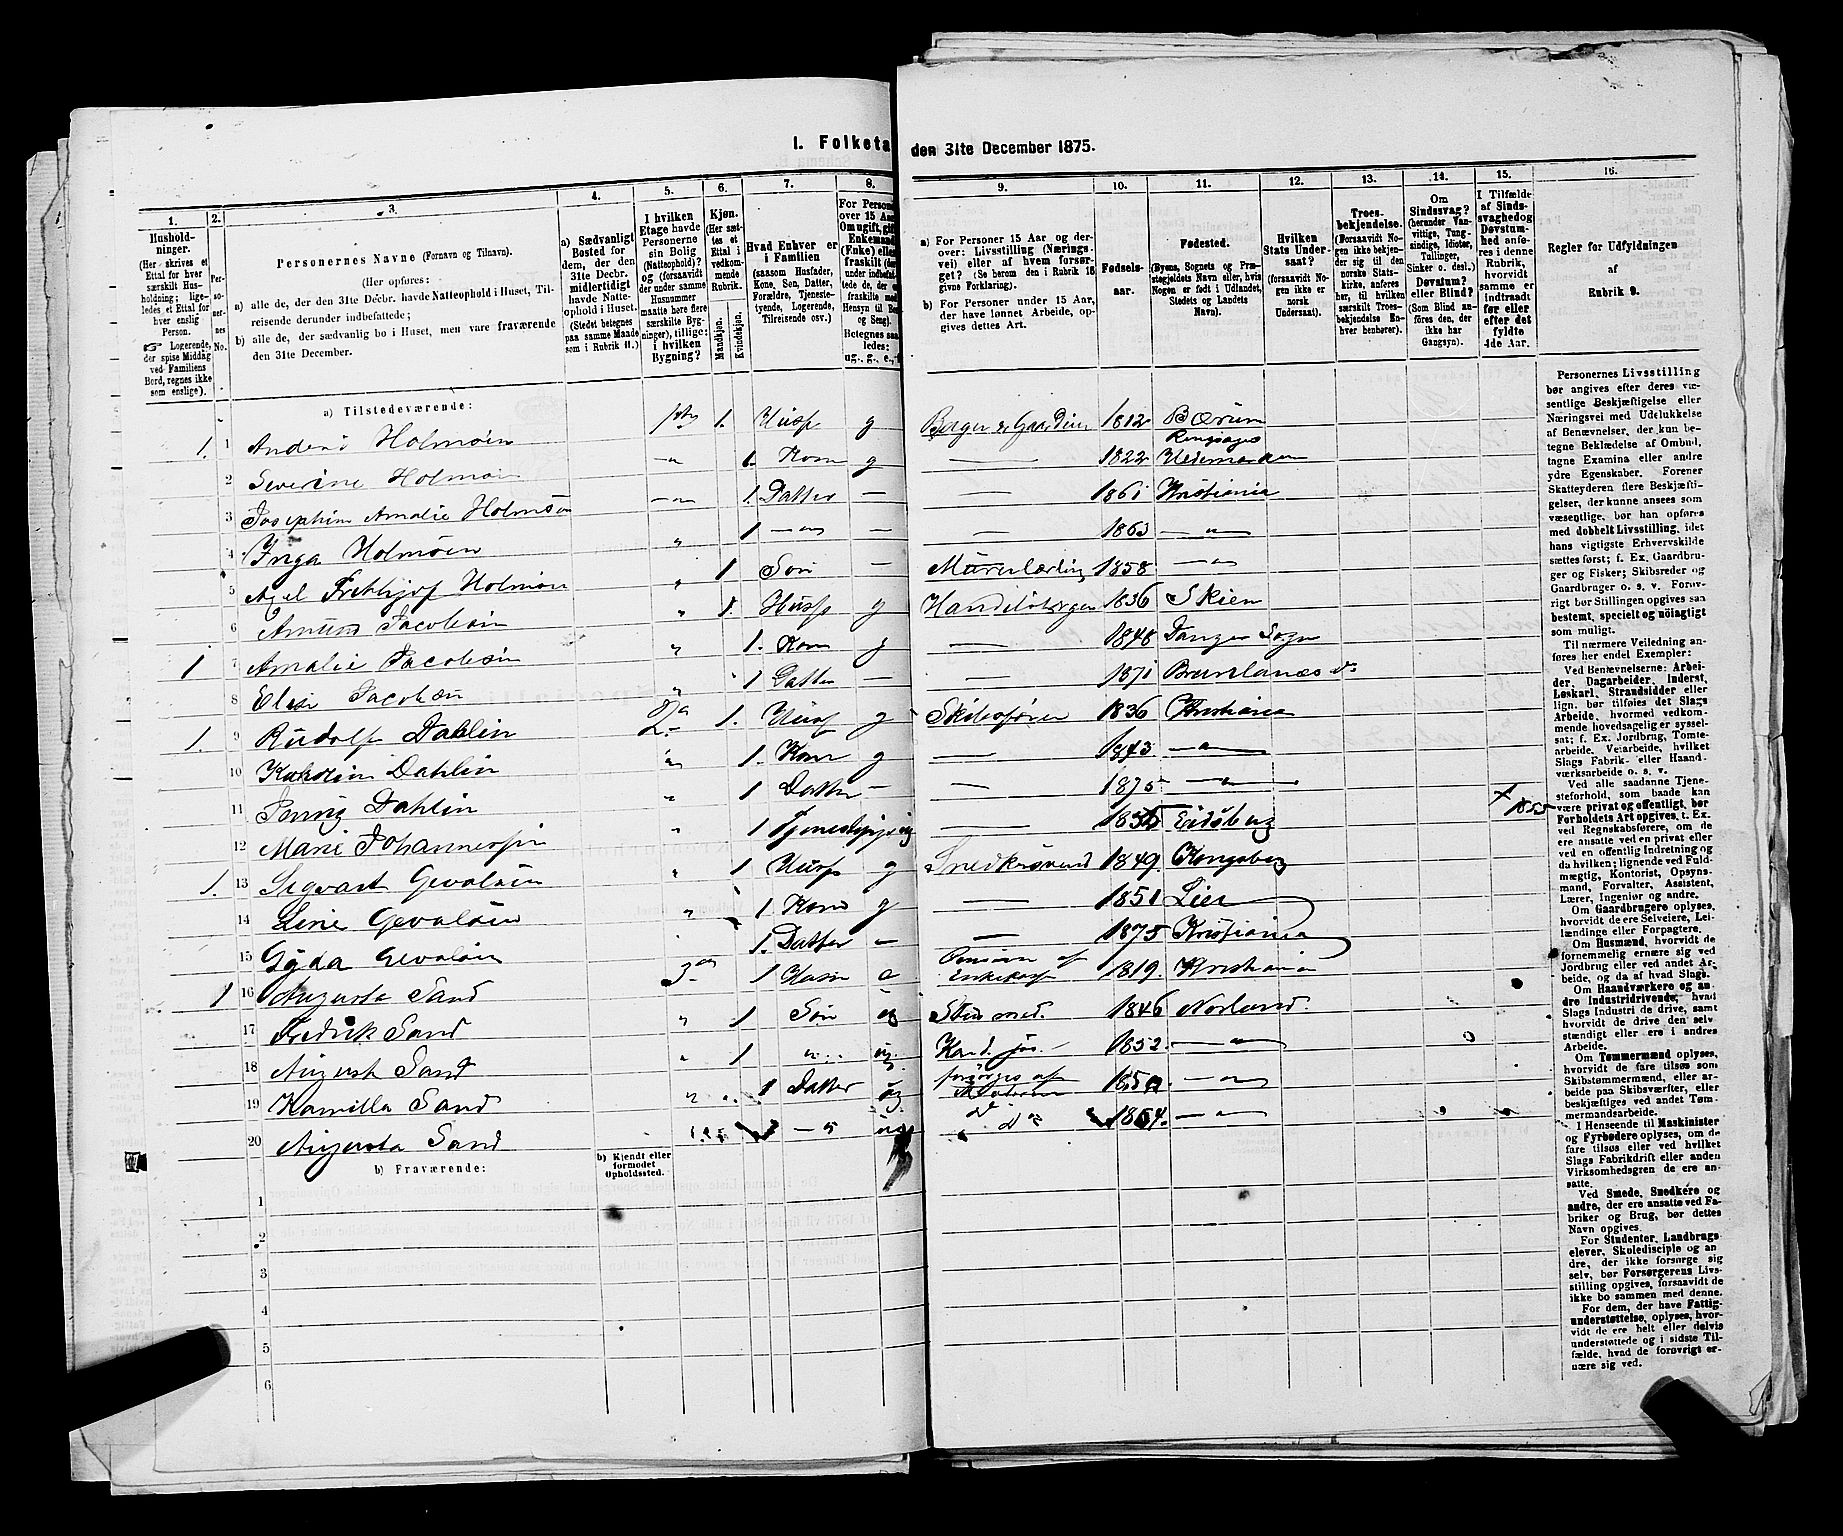 I. Folketa den 31te December 1875.
1. 2. 3. 4. 5. 6. 7. 8. 9. 10. 11. 12. 13. 14. 15. 16.
Hushold-
ninger.
(Her skrives et
Ettal for hver
særskilt Hus-
holdning; lige-
ledes et Ettal for
hver enslig
Person.
☞ Logerende,
der spise Middag
ved Familiens
Bord, regnes ikke
som enslige).
Per-
so-
ner-
nes
No.
Personernes Navne (Fornavn og Tilnavn).
(Her opføres:
a) alle de, der den 31te Decbr. havde Natteophold i Huset, Til-
reisende derunder indbefattede;
b) alle de, der sædvanlig bo i Huset, men vare fraværende
den 31te December.
a) Sædvanligt
Bosted for
dem, der den
31te Decbr.
midlertidigt
havde Natte-
ophold i Huset.
(Stedet betegnes
paa samme Maade
som i Rubrik 11.)
I hvilken
Etage havde
Personerne
sin Bolig
(Natteophold)?
(og forsaavidt
der under samme
Husnummer
maatte høre flere
særskilte Byg-
ninger), tillige:
i hvilken
Bygning?
Kjøn.
(Her sæt-
tes et
Ettal i
vedkom-
mende
Rubrik.
Mandkjøn.
Kvindekjøn.
Hvad Enhver er
i Familien
(saasom Husfader,
Kone, Søn, Datter,
Forældre, Tjeneste-
tyende, Logerende,
Tilreisende osv.)
For Persone
over 15 Aar
Om ugift, gift
Enkemand
(Enke) eller
fraskilt (der-
under indbefat-
tede de, der e
fraskilte med
Hensyn til Bo
og Seng).
Betegnes saa
ledes:
ug., g., e., f
a) For Personer 15 Aar og der-
over: Livsstilling (Nærings-
vei) eller af hvem forsør-
get? (Se herom den i Rubrik 16
givne Forklaring).
b) For Personer under 15 Aar,
der have lønnet Arbeide, op-
gives dettes Art.
Fødsels-
aar.
Fødested.
(Byens, Sognets og Præ-
stegjeldets Navn eller, hvis
Nogen er født i Udlandet,
Stedets og Landets
Navn).
Hvilken
Stats Under-
saat?
(forsaavidt No-
gen ikke er
norsk
Undersaat).
Troes-
bekjendelse.
(Forsaavidt No-
gen ikke bekjen-
der sig til den
norske Stats-
kirke, anføres
her, til hvilken
særskilt Troes-
bekjendelse En-
hver henhører).
Om
Sindssvag?
(herunder Van-
vittige, Tung-
sindige, Idioter,
Tullinger,
Sinker o. desl.)
Døvstum?
eller Blind?
(Som Blind an-
føres den, der
ikke har
Gangsyn).
I Tilfælde
af Sinds-
svaghed og
Døvstum-
hed anfø-
res i denne
Rubrik,
hvorvidt
samme er
indtraadt
før eller
efter det
fyldte
4de Aar.
Regler for Udfyldningen
af
Rubrik 9.
a) Tilstedeværende:
1. 1 Anders Holmsen 1. Husf g 1812 Bærum
2 Severine Holmsen 1. Kone g — 1822 Ringsager Hedemarken
3 Josephine Amalie Holmsen 1. Datter — — 1861 Kristiania
4 Inga Holmsen 1 — — 1863 — " —
5 Axel Frithjof Holmsen " 1 Søn — Murerlærling 1858 — " —
6 Amund Jacobsen " 1. Husf g 1836 Skien
1 7 Amalie Jacobsen " 1. Kone g — 1848 Sogn
8 Elise Jacobsen " 1 Datter — 1871 Brunlanæs do
1. 9 Rudolf Dahlin 2 1. Husf g Skibsfører 1836 Kristiania
10 Dahlin " 1. Kone g — 1843 — " —
11 Jenny Dahlin " 1 Datter — — 1875 — " —
12 Marie Johannessen " 1 — Eidsberg + 1855
1. 13 Sigvart Gevelsen " 1 Husf g Snedkersvend 1849 Kongsberg
14 Line Gevelsen " 1 Kone g — 1851 Lier
15 Gyda Gevelsen 1. Datter — — 1875 Kristiania
1 16 Augusta Sand 3 1 e Pension af Enkekasse 1819 Kristiania
17 Fredrik Sand " 1 Søn ug Stud med. 1846 Norland.
18 August Sand " 1 " ug. Kand. jus. 1852 — " —
19 Kamilla Sand " 1 Datter ug forsørges af Moderen — " —
20 Augusta Sand 1 — " ug do 1864. — " —
b) Fraværende:
b) Kjendt eller
formodet
Opholdssted.
1
2
3
4
5
6
Personernes Livsstilling
bør angives efter deres væ-
sentlige Beskjæftigelse eller
Næringsvei med Udelukkelse
af Benævnelser, der kun be-
tegne Beklædelse af Ombud,
tagne Examina eller andre
ydre Egenskaber. Forener
Skatteyderen flere Beskjæfti-
gelser, der kunne ansees som
væsentlige, bør han opføres
med dobbelt Livsstilling, idet
hans vigtigste Erhvervskilde
sættes først; f. Ex. Gaardbru-
ger og Fisker; Skibsreder og
Gaardbruger o. s. v. Forøv-
rigt bør Stillingen opgives saa
bestemt, specielt og nöiagtigt
som muligt.
Til nærmere Veiledning an-
føres her endel Exempler:
Ved Benævnelserne: Arbei-
der, Dagarbeider, Inderst,
Løskarl, Strandsidder eller
lign. bør tilføies det Slags
Arbeide, hvormed vedkom-
mende hovedsagelig er syssel-
sat; f. Ex. Jordbrug, Tomte-
arbeide, Veiarbeide, hvilket
Slags Fabrik- eller Haand-
værksarbeide o. s. v.
Ved alle saadanne Tjene-
steforhold, som baade kan
være privat og offentligt, bør
Forholdets Art opgives, t. Ex.
ved Regnskabsførere, om de
ere ansatte ved en privat efler
ved en offentlig Indretning og
da hvilken; lignende ved Fuld-
mægtig, Kontorist, Opsyns-
mand, Forvalter, Assistent,
Lærer, Ingeniør og andre.
Om Gaardbrugere oplyses,
hvorvidt de ere Selveiere, Lei-
lændinge eller Forpagtere.
Om Husmænd, hvorvidt de
fornemmelig ernære sig ved
Jordbrug eller ved andet Ar-
beide, og da af hvad Slags.
Om Haandværkere og an-
dre Industridrivende, hvad
Slags Industri de drive, samt
hvorvidt de drive den selv-
stændigt eller ere i andres
Arbeide.
Om Tømmermænd oplyses,
hvorvidt de fare tilsøs som
Skibstømmermænd, eller ar-
beide paa Skibsværfter, eller
beskjæftiges ved andet Tøm-
mermandsarbeide.
I Henseende til Maskinister
og Fyrbødere oplyses, om de
fare tilsøs eller ved hvilket
Slags Fabrikdrift eller anden
Virksomhedsgren de ere an-
satte.
Ved Smede, Snedkere og
andre, der ere ansatte ved Fa-
briker og Brug, bør dettes
Navn opgives.
For Studenter, Landbrugs-
elever, Skoledisciple og an-
dre, der ikke forsørge sig
selv, bør Forsørgerens Livs-
stilling opgives, forsaavidt de
ikke bo sammen med denne.
For dem, der have Fattig-
understøttelse, oplyses, hvor-
vidt de ere helt eller delvis
understøttede og i sidste Til-
fælde, hvad de forøvrigt er-
nære sig ved.